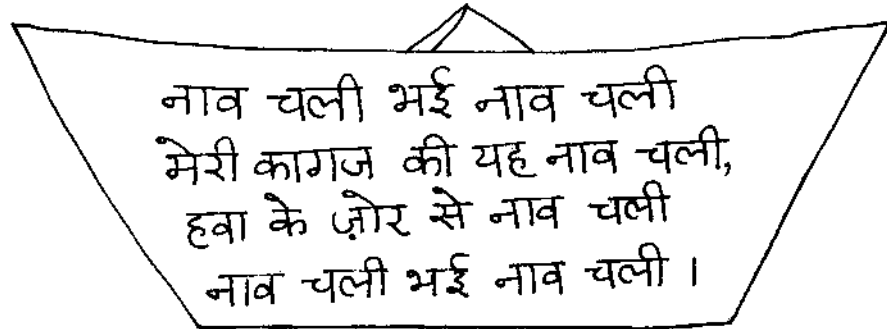 नाव चली भई नाव चली
मेरी कागज की यह नाव चली,
हवा के ज़ोर से नाव चली
नाव चली भई नाव चली ।